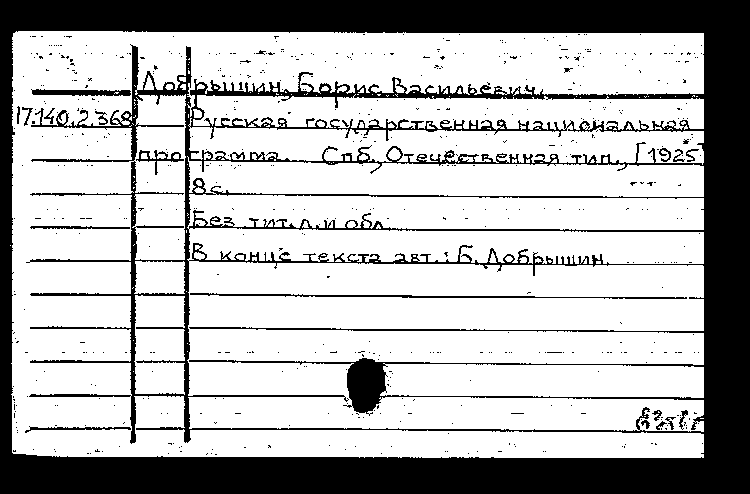 Добрышин, Борис Васильевич.
17.140.2.368 Русская государственная национальная
программа. Спб., Отечественная тип., [1925]
8 с.
Без тит.л.и обл.
В конце текста авт.: Б. Добрышин.